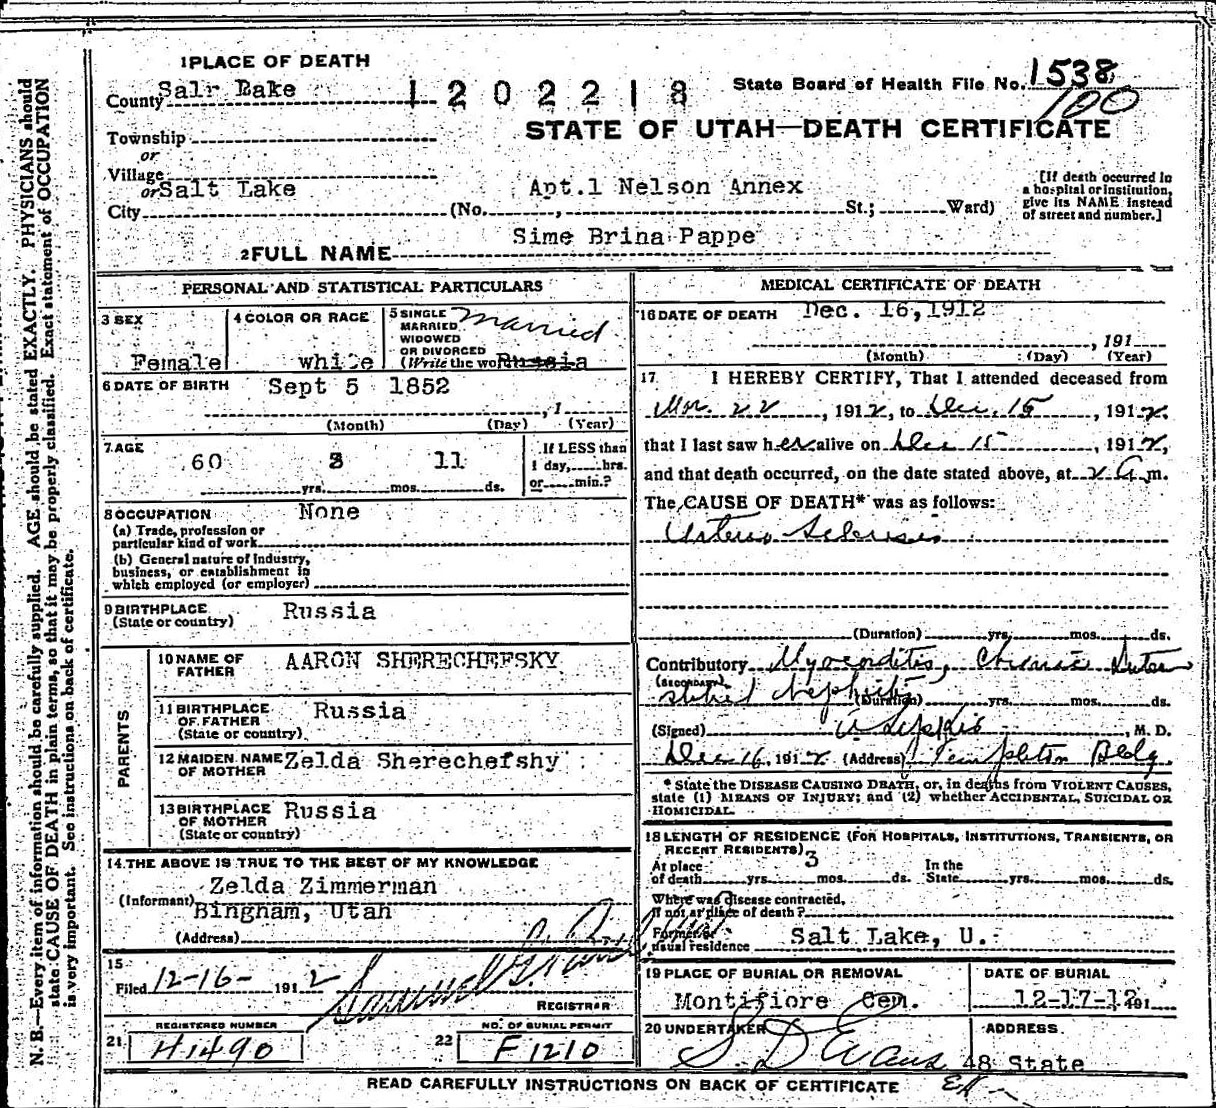 1 PLACE OF DEATH
County Salr Dake
1202218
State Board of Health File No. 1538
100
Township
or
Village
STATE OF UTAH—DEATH CERTIFICATE
or Salt Lake
City
Apt.1 Nelson Annex
(No. , St.; Ward)
[If death occurred in
a hospital or institution,
give its NAME instead
of street and number.]
2 FULL NAME Sime Brina Pappe
PERSONAL AND STATISTICAL PARTICULARS
3 SEX Female
4 COLOR OR RACE white
5 SINGLE
MARRIED
WIDOWED
OR DIVORCED
(Write the word) Married
Russia
6 DATE OF BIRTH Sept 5 1852
, 1
(Month) (Day) (Year)
7. AGE 60 3 11
yrs. mos. ds.
If LESS than
1 day, hrs.
or min.?
8 OCCUPATION None
(a) Trade, profession or
particular kind of work
(b) General nature of industry,
business, or establishment in
which employed (or employer)
9 BIRTHPLACE Russia
(State or country)
PARENTS
10 NAME OF
FATHER AARON SHERECHEFSKY
11 BIRTHPLACE
OF FATHER Russia
(State or country)
12 MAIDEN NAME
OF MOTHER Zelda Sherechefshy
13 BIRTHPLACE
OF MOTHER Russia
(State or country)
14. THE ABOVE IS TRUE TO THE BEST OF MY KNOWLEDGE
Zelda Zimmerman
(Informant)
Bingham, Utah
(Address)
15
Filed 12-16- 1912
Samuel G.
REGISTRAR
REGISTERED NUMBER
21 H1490
NO. OF BURIAL PERMIT
22 F1210
MEDICAL CERTIFICATE OF DEATH
16 DATE OF DEATH Dec. 16, 1912
, 191
(Month) (Day) (Year)
17. I HEREBY CERTIFY, That I attended deceased from
Nov. 22, 1912, to Dec. 15, 1912,
that I last saw her alive on Dec 15, 1912,
and that death occurred, on the date stated above, at 2 A.m.
The CAUSE OF DEATH* was as follows:
Arterio Sclerosis
(Duration) yrs. mos. ds.
Contributory Myocarditis, Chronic Inter
(SECONDARY)
stitial Nephritis
(Duration) yrs. mos. ds.
(Signed) , M. D.
Dec 16, 1912 (Address) Templeton Bldg.
* State the DISEASE CAUSING DEATH, or, in deaths from VIOLENT CAUSES,
state (1) MEANS OF INJURY; and (2) whether ACCIDENTAL, SUICIDAL OR
HOMICIDAL.
18 LENGTH OF RESIDENCE (FOR HOSPITALS, INSTITUTIONS, TRANSIENTS, OR
RECENT RESIDENTS)
At place
of death yrs. 3 mos. ds.
In the
State yrs. mos. ds.
Where was disease contracted,
if not at place of death?
Former or
usual residence Salt Lake, U.
19 PLACE OF BURIAL OR REMOVAL
Montifiore Cem.
DATE OF BURIAL
12-17-12, 191
20 UNDERTAKER
S. D. Evans
ADDRESS
48 State
READ CAREFULLY INSTRUCTIONS ON BACK OF CERTIFICATE
N. B.—Every item of information should be carefully supplied. AGE should be stated EXACTLY. PHYSICIANS should
state CAUSE OF DEATH in plain terms, so that it may be properly classified. Exact statement of OCCUPATION
is very important. See instructions on back of certificate.